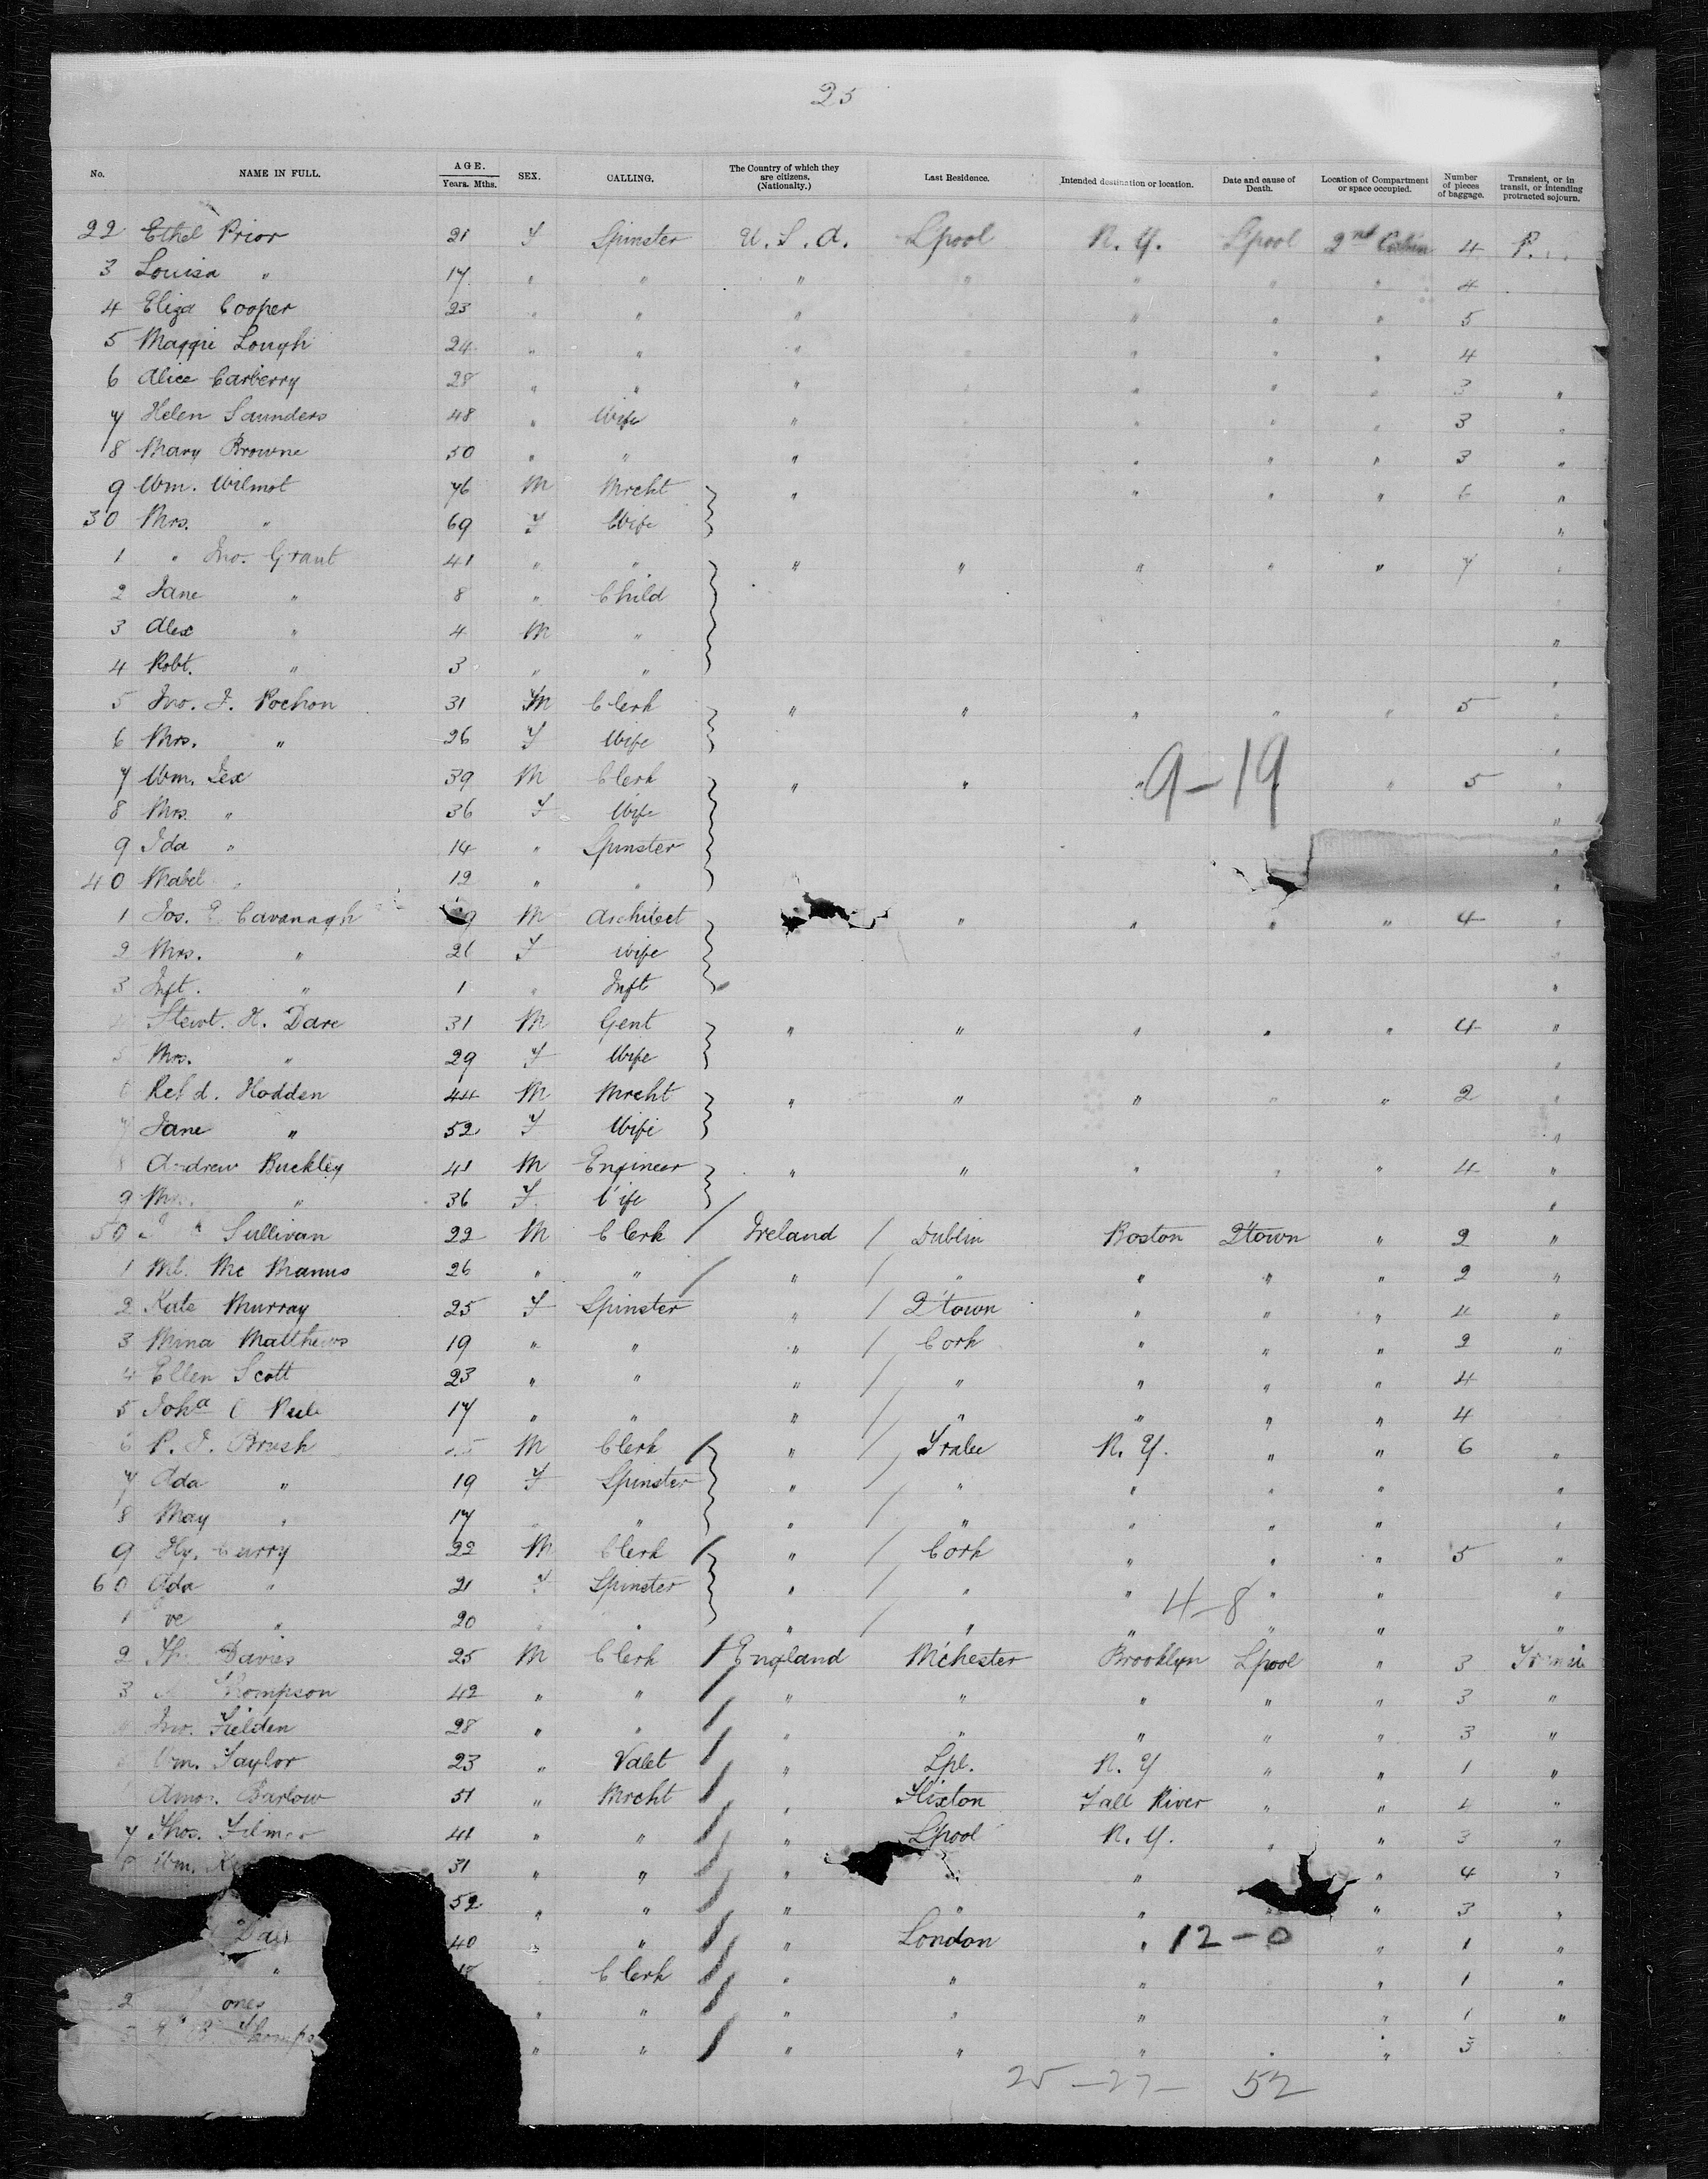 25
No. NAME IN FULL. AGE. Years. Mths. SEX. CALLING. The Country of which they are citizens. (Nationalty.) Last Residence. Intended destination or location. Date and cause of Death. Location of Compartment or space occupied. Number of pieces of baggage. Transient, or in transit, or intending protracted sojourn.
22 Ethel Prior 21 F Spinster U.S.A. Lpool N.Y. Lpool 2nd Cabin 4 P.
3 Louisa " 17 " " " " " " " 4
4 Eliza Cooper 23 " " " " " " 5
5 Maggie Lough 24 " " " " " " 4
6 Alice Carberry 28 " " " " " " 3 "
7 Helen Saunders 48 " Wife " " " " 3 "
8 Mary Browne 50 " " " " " " 3 "
9 Wm. Wilmot 76 M Mrcht " " " " 6 "
30 Mrs. " 69 F Wife "
1 " Jno. Grant 41 " " " " " " " 7 "
2 Jane " 8 " Child
3 Alex " 4 M " "
4 Robt. " 3 " " "
5 Jno. F. Rochon 31 M Clerk " " " " " 5 "
6 Mrs. " 26 F Wife "
7 Wm. Lex 39 M Clerk " " " " 5 "
9-19
8 Mrs. " 36 F Wife "
9 Ida " 14 " Spinster "
40 Mabel " 12 " " "
1 Jos. E. Cavanagh 9 M Architect " " " " 4 "
2 Mrs. " 26 F Wife "
3 Inft. " 1 " Inft "
Stewt. H. Dare 31 M Gent " " " " " 4 "
5 Mrs. " 29 F Wife "
6 Richd. Hodden 44 M Mrcht " " " " " 2 "
7 Jane " 52 F Wife "
8 Andrew Buckley 41 M Engineer " " " " " 4 "
9 Mrs. " 36 F Wife "
50 Sullivan 22 M Clerk / Ireland / Dublin Boston Qtown " 2 "
1 Ml. Mc Manus 26 " " / " / " " " " 2 "
2 Kate Murray 25 F Spinster " / Q'town " " " 4 "
3 Mina Matthews 19 " " " / Cork " " " 2 "
4 Ellen Scott 23 " " " / " " " " 4
5 Joha 17 " " " / " " " " 4
6 P. J. Brush M Clerk / " / Tralee N.Y. " " 6 "
7 Ada " 19 F Spinster " / " " " " "
8 May " 17 " " / " " " " "
9 Hy. Curry 22 M Clerk / " / Cork " " " 5 "
60 Ada " 21 F Spinster " / " " " " "
4-8
1 " 20 " " " / " " " " "
2 Davies 25 M Clerk / England M'chester Brooklyn Lpool " 3
3 Thompson 42 " " / " " " " " 3 "
Jno. Fielden 28 " " / " " " " 3 "
Wm. Taylor 23 " Valet / " Lpl. N.Y " " 1 "
Amos. Barlow 51 " Mrcht / " Flixton Fall River " " 4 "
7 Thos. 41 " " / " Lpool N.Y. " " 3 "
8 Wm. 31 " " / " " " 4 "
52 " " / " " " " " 3 "
40 " " / " London " " 1 "
12-0
" Clerk / " " " " 1 "
2 ones " " / " " " " 1 "
3 " " / " " " " " 3
25-27- 52